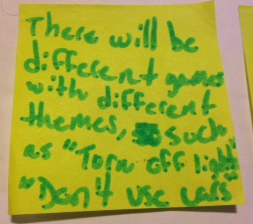 There will be
different games
with different
themes, such
as "Turn off light
"Don't use cars"